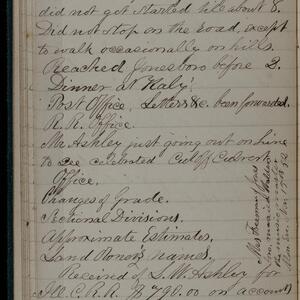 did not get started till about 8.
Did not stop on the road, except
to walk occasionally on hills.
Reached Jonesboro before 2.
Dinner at
Post Office. Letters &c. been forwarded.
R.R. Office.
Mr. Ashley just going out on line
to see celebrated Culvert
Office.
Changes of Grade.
Sectional Divisions.
Approximate Estimates.
Land Donors names.
Received of L.W. Ashley for
Ill. C.R.R. $790.00 on account